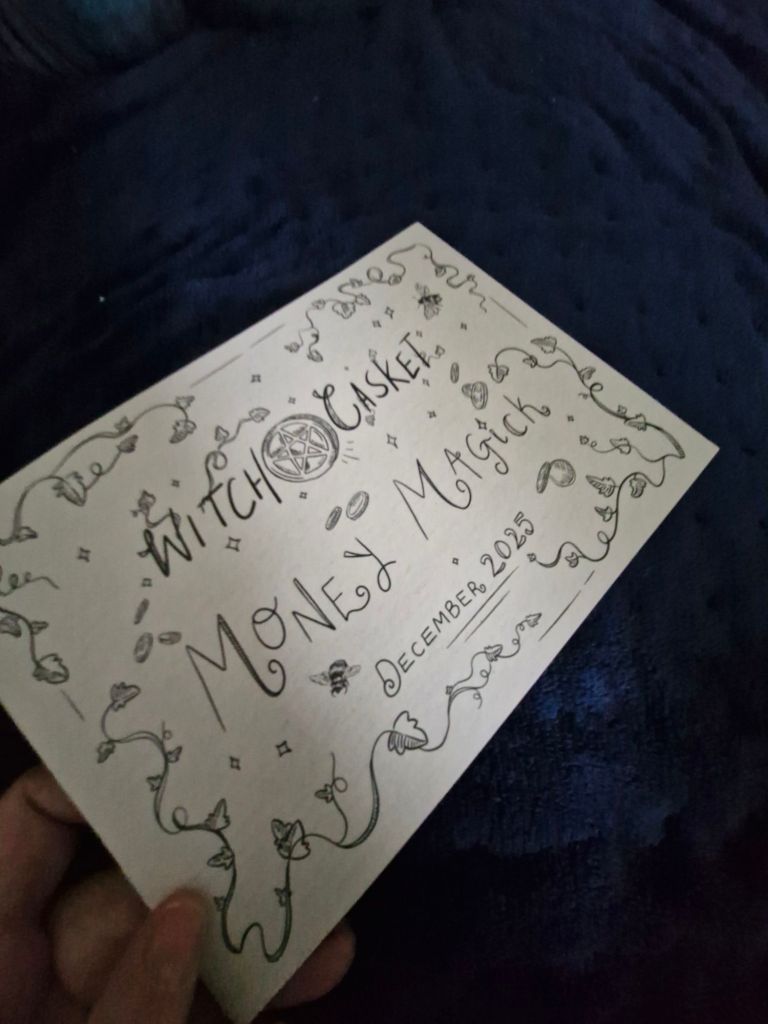 WITCH CASKET
MONEY MAGICK
DECEMBER 2025